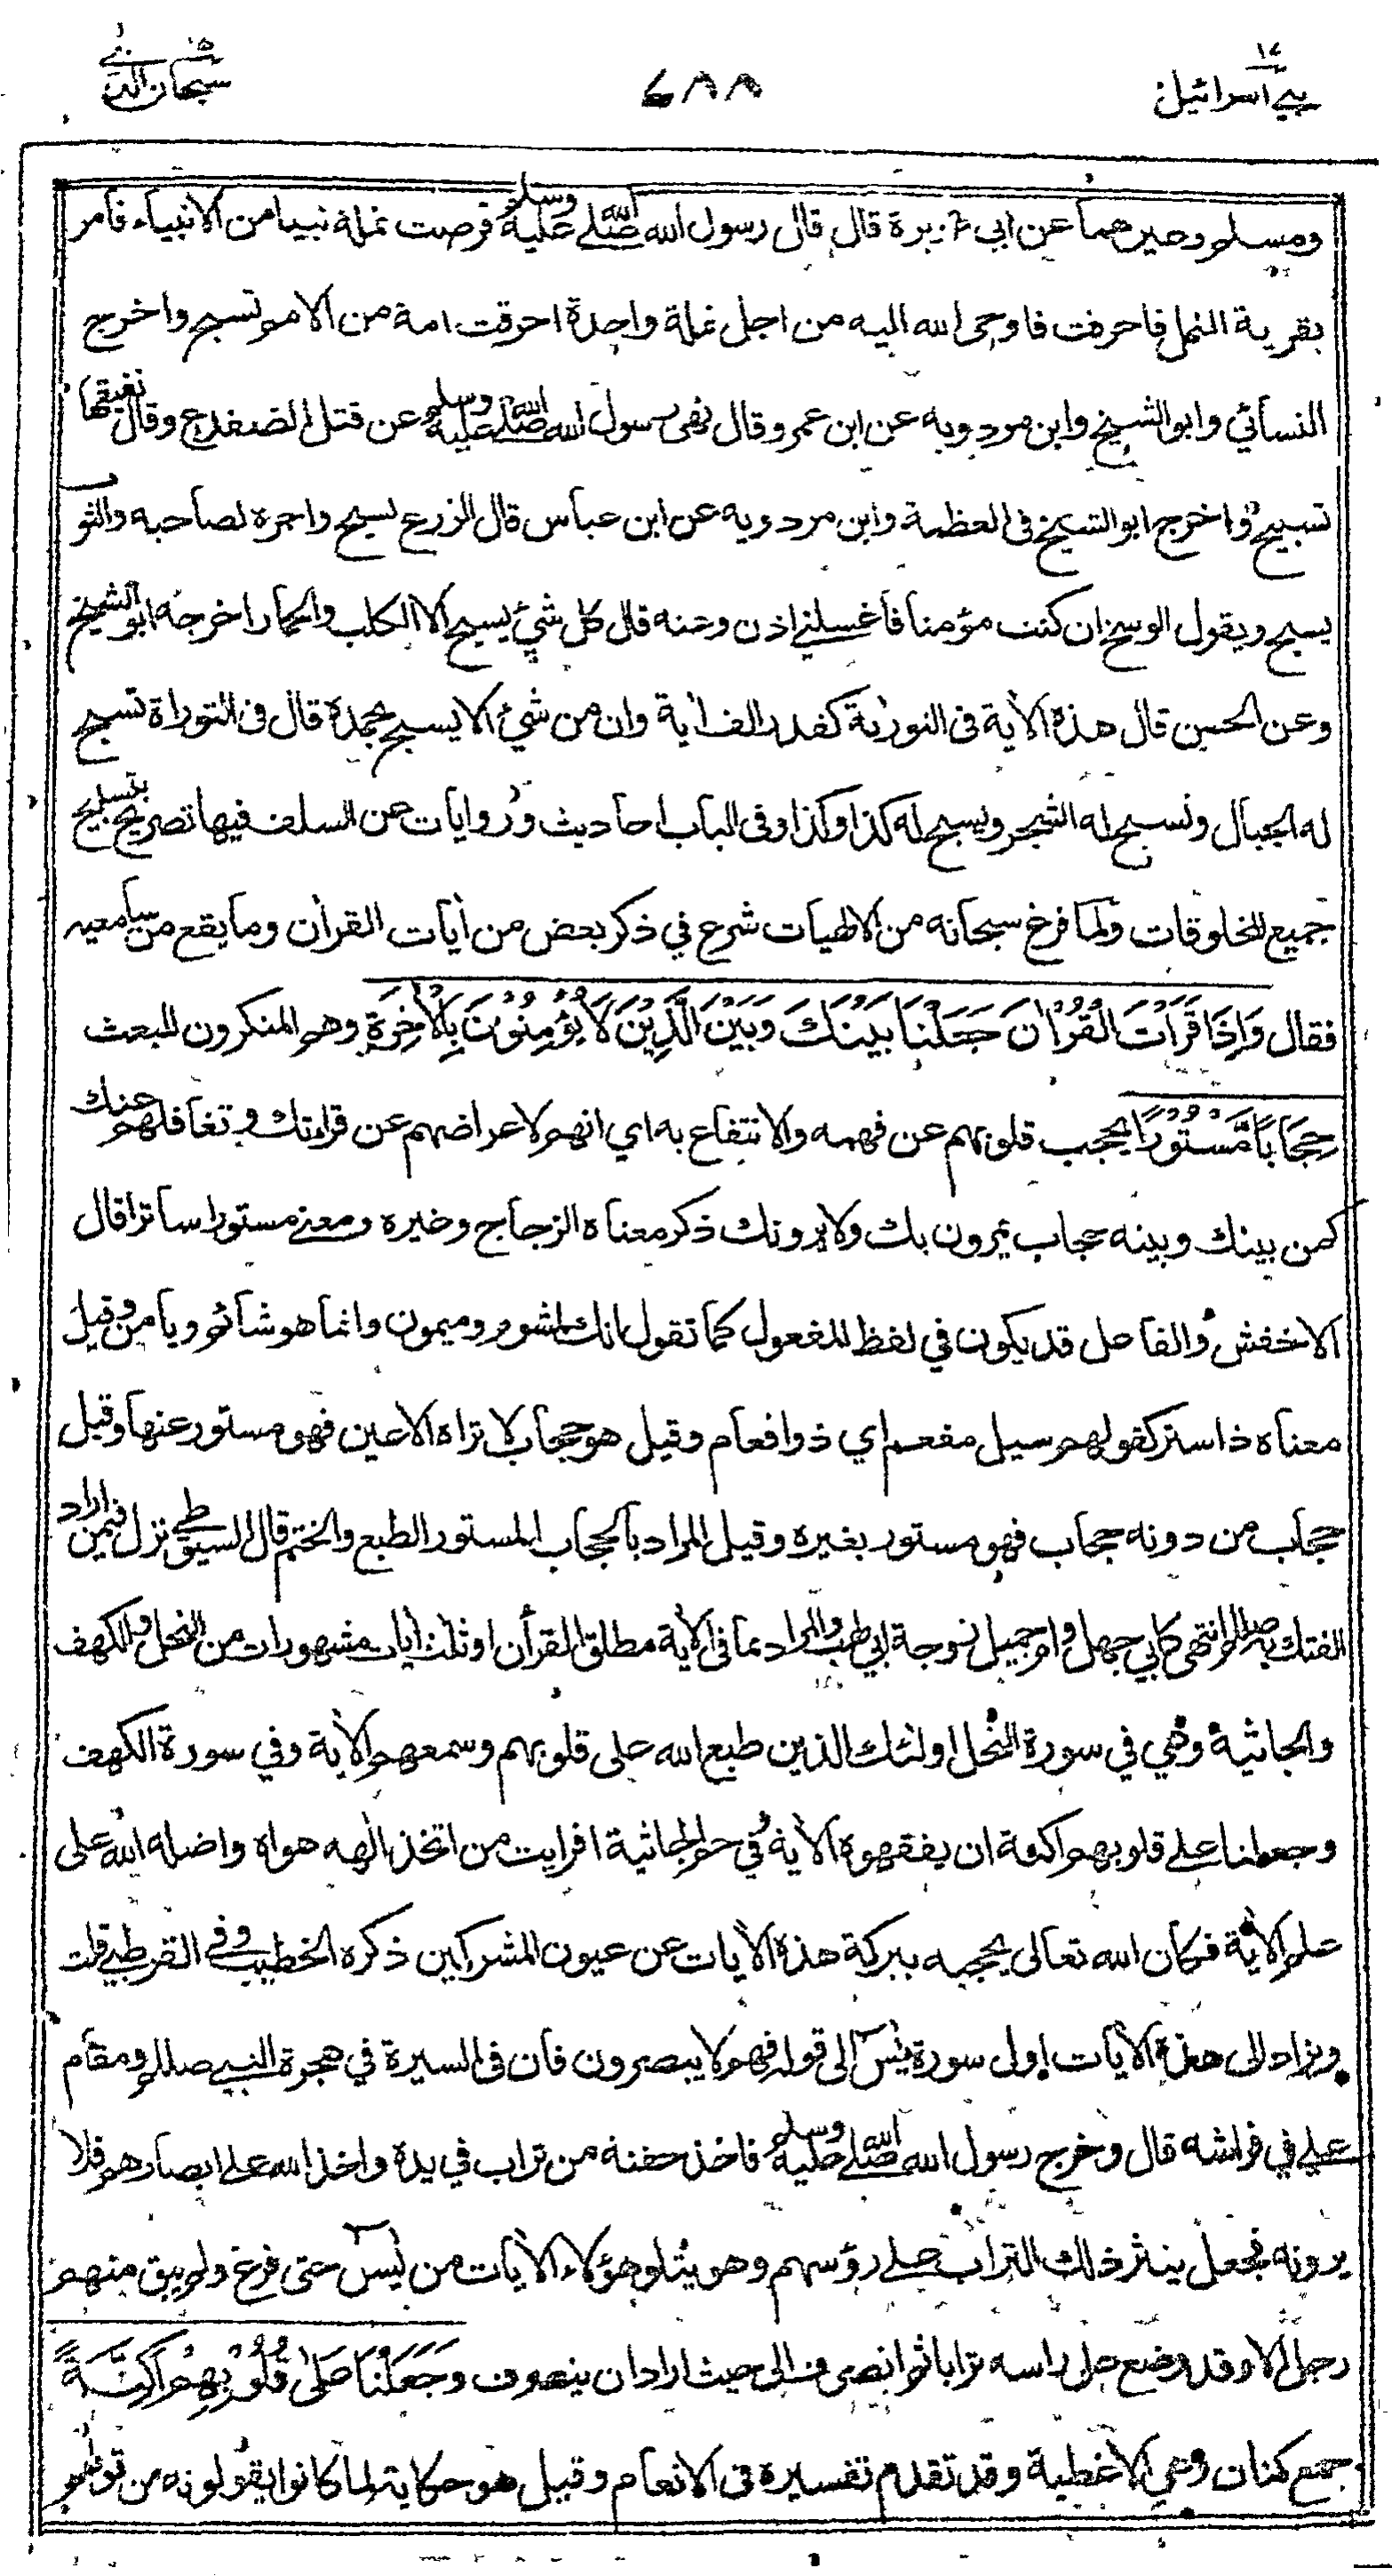 بني اسرائيل ١٧
٦٨٨
سبحان الذي ١٥
ومسلم وغيرهما عن ابي هريرة قال قال رسول الله صلى الله عليه وسلم قرصت نملة نبيا من الانبياء فأمر
بقرية النمل فاحرقت فاوحى الله اليه من اجل نملة واحدة احرقت امة من الامم تسبح واخرج
النسائي وابو الشيخ وابن مردويه عن ابن عمرو قال نهى رسول الله صلى الله عليه وسلم عن قتل الضفدع وقال نقيقها
تسبيح واخرج ابو الشيخ في العظمة وابن مردويه عن ابن عباس قال الزرع يسبح واجره لصاحبه والثوب
يسبح ويقول الوسخ ان كنت مؤمنا فأغسلني اذن وعنه قال كل شيء يسبح الا الكلب والحمار اخرجه ابو الشيخ
وعن الحسن قال هذه الأية في التورىة كقدر الف أية وان من شيء الا يسبح بحمده قال في التوراة تسبح
له الجبال وتسبح له الشجر ويسبح له كذا وكذا وفي الباب احاديث وروايات عن السلف فيها تصريح بتسبيح
جميع المخلوقات ولما فرغ سبحانه من الالهيات شرع في ذكر بعض من أيات القرأن وما يقع من سامعيه
فقال وَاِذَا قَرَأْتَ الْقُرْاٰنَ جَعَلْنَا بَيْنَكَ وَبَيْنَ الَّذِيْنَ لَا يُؤْمِنُوْنَ بِالْاٰخِرَةِ وهم المنكرون للبعث
حِجَابًا مَّسْتُوْرًا يحجب قلوبهم عن فهمه والانتفاع به اي انهم لاعراضهم عن قراءتك وتغافلهم عنك
كمن بينك وبينه حجاب يمرون بك ولا يرونك ذكر معناه الزجاج وغيره ومعنى مستورا ساترا قال
الاخفش والفاعل قد يكون في لفظ المفعول كما تقول انك لمشوم وميمون وانما هو شائم ويامن وقيل
معناه ذا ستر كقولهم سيل مفعم اي ذو افعام وقيل هو حجاب لا تراه الاعين فهو مستور عنها وقيل
حجاب من دونه حجاب فهو مستور بغيره وقيل المراد بالحجاب المستور الطبع والختم قال السيوطي نزل فيمن اراد
الفتك به صللم انتهى كابي جهل وام جميل زوجة ابي لهب والمراد بما في الأية مطلق القرأن او ثلث أيات مشهورات من النحل والكهف
والجاثية وهي في سورة النحل اولئك الذين طبع الله على قلوبهم وسمعهم الأية وفي سورة الكهف
وجعلنا على قلوبهم اكنة ان يفقهوه الأية وفي حم الجاثية افرايت من اتخذ الهه هواه واضله الله على
علم الأية فكان الله تعالى يحجبه ببركة هذه الأيات عن عيون المشركين ذكره الخطيب وفي القرطبي قلت
ويزاد الى هذه الأيات اول سورة يٰسٓ الى قوله فهم لا يبصرون فان في السيرة في هجرة النبي صللم ومقام
علي في فراشه قال وخرج رسول الله صلى الله عليه وسلم فاخذ حفنة من تراب في يده واخذ الله على ابصارهم فلا
يرونه فجعل ينثر ذلك التراب على رؤسهم وهو يتلو هؤلاء الأيات من يٰسٓ حتى فرغ ولم يبق منهم
رجل الا وقد وضع على راسه ترابا ثم انصرف الى حيث اراد ان ينصرف وَجَعَلْنَا عَلٰى قُلُوْبِهِمْ اَكِنَّةً
جمع كنان وهي الاغطية وقد تقدم تفسيره في الانعام وقيل هو حكاية لما كانوا يقولونه من قولهم